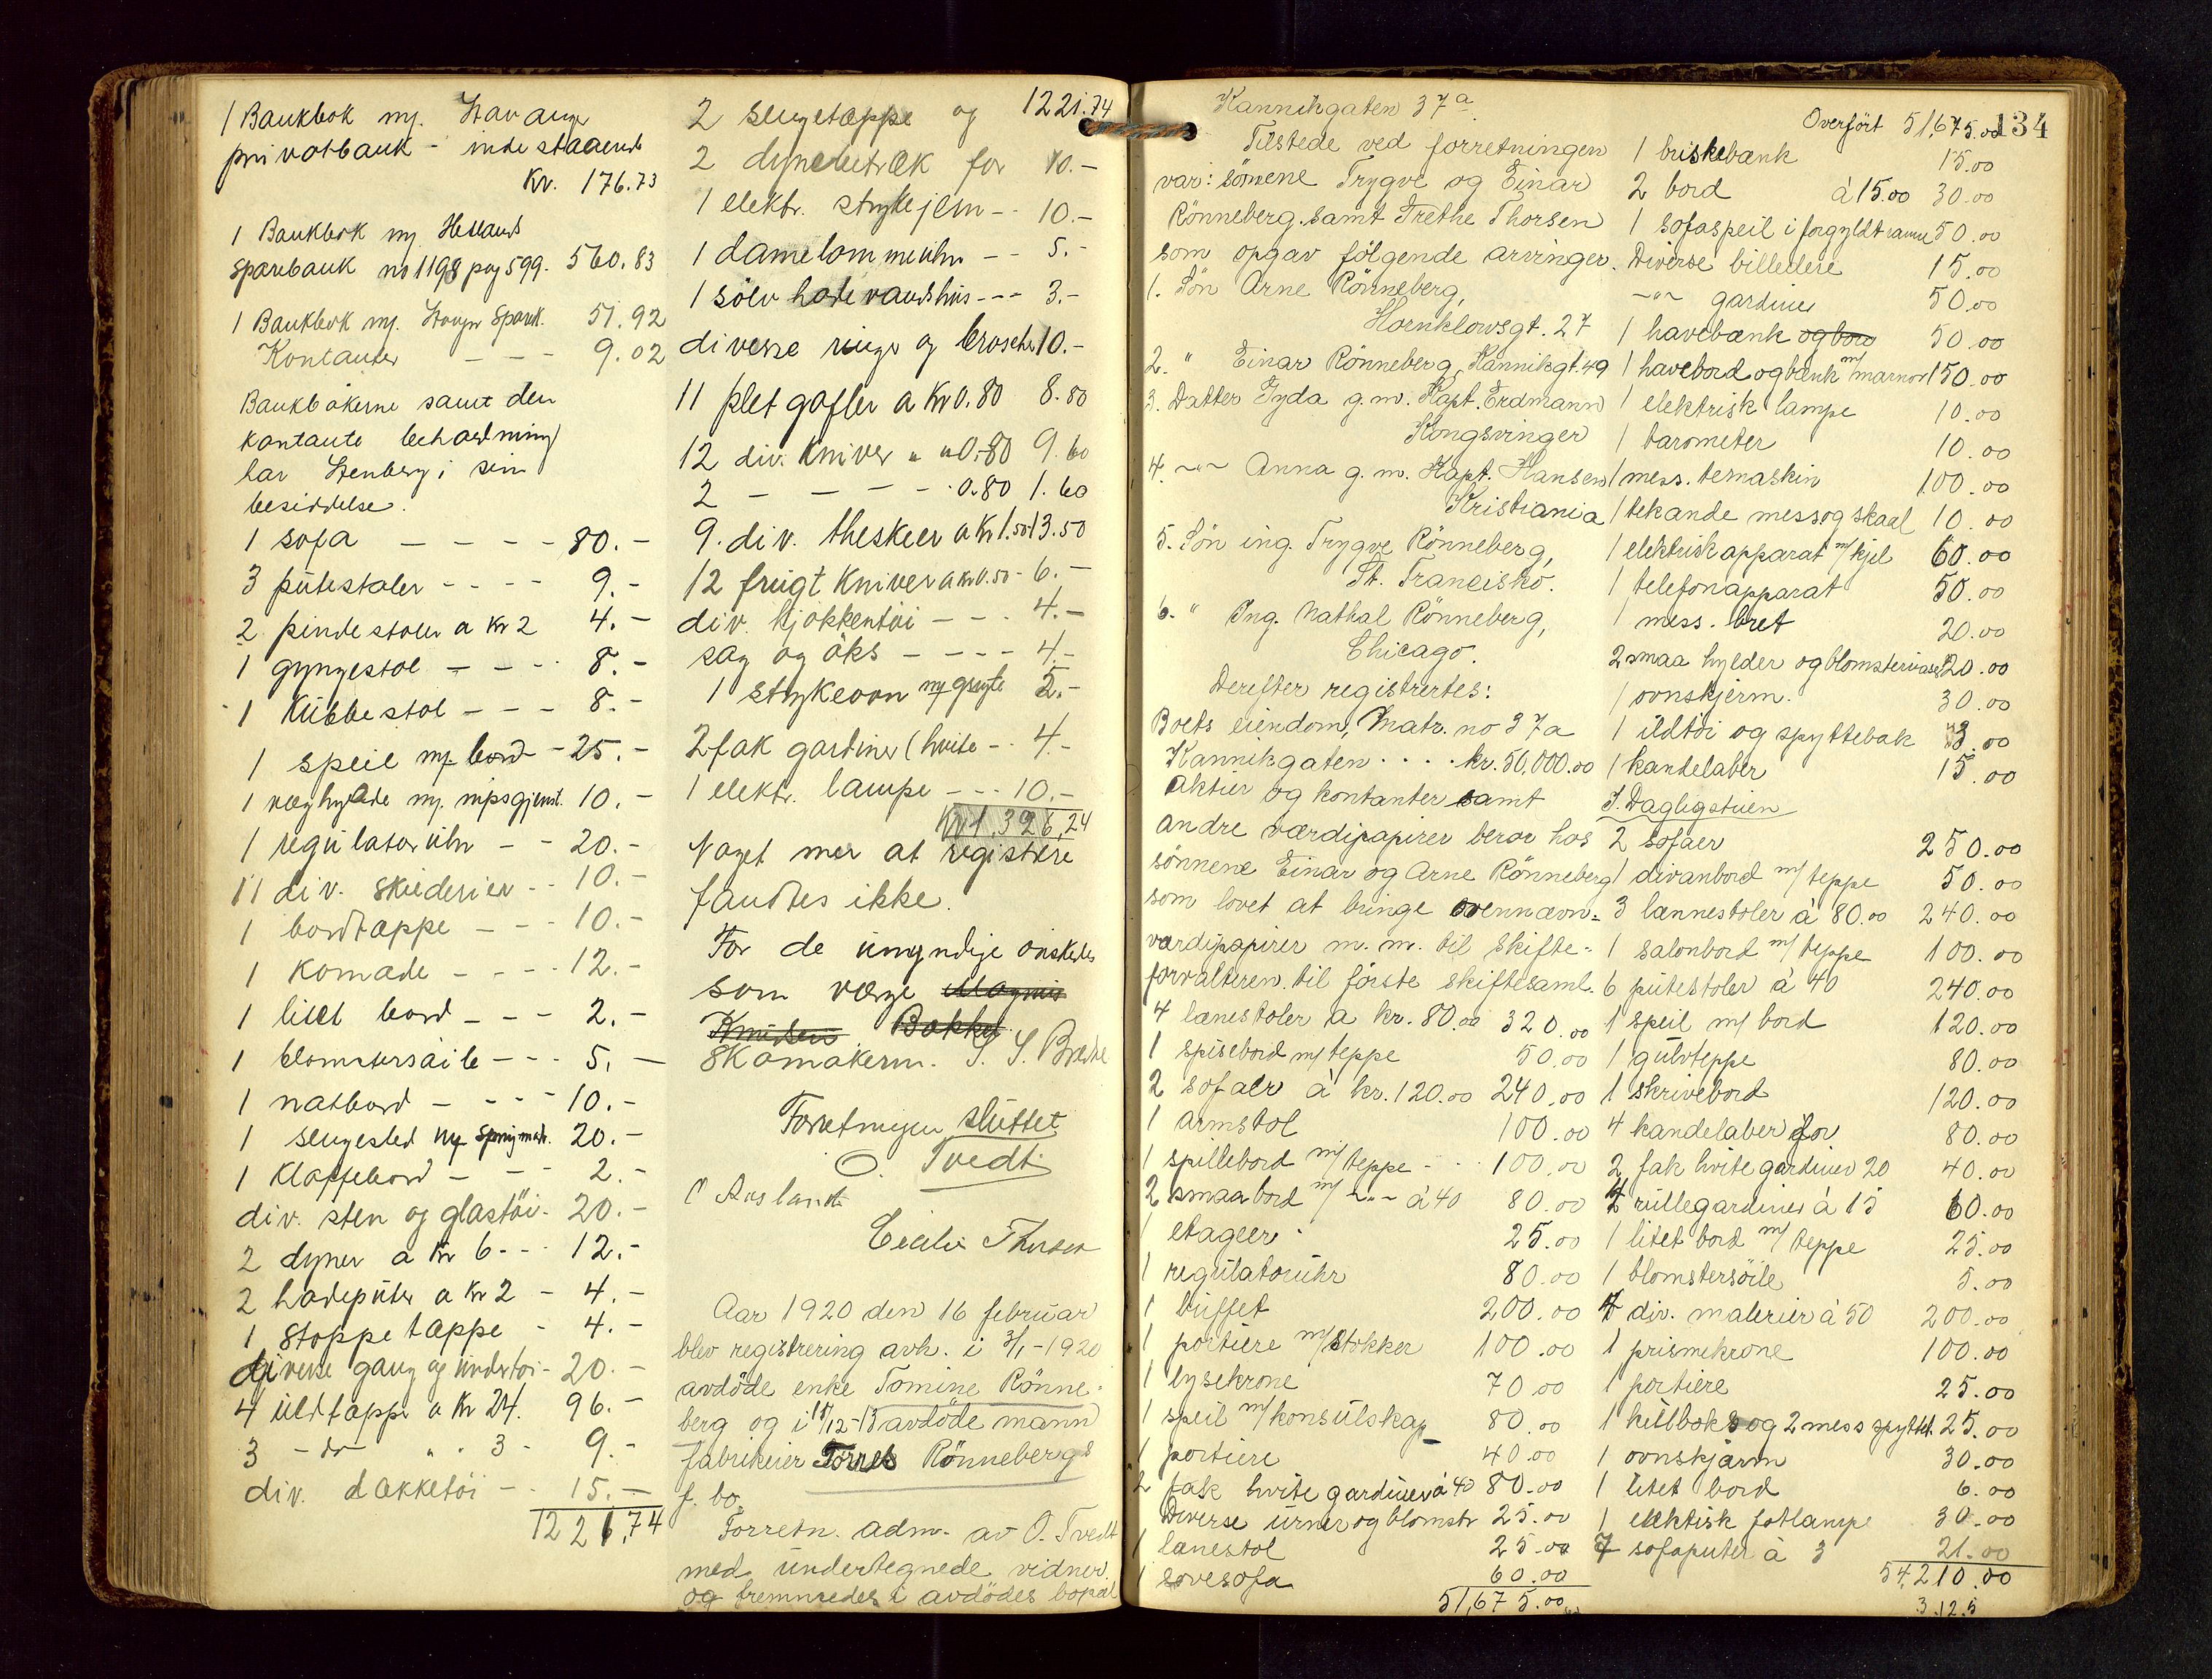 1 Bankbok m/. Stavanger
privatbank - indestaaende
Kr. 176.73
1 Bankbok m/ Hetlands
sparebank no 1198 pag 599. 560.83
1 Bankbok m/. Stavgr Spark. 51.92
Kontanter - - - 9.02
Bankbökerne samt den
kontante beholdning
har Stenberg i sin
besiddelse.
1 sofa - - - - 80.-
3 putestoler - - - - 9.-
2 pindestoler a Kr 2 4.-
1 gyngestol - - - - 8.-
1 Kubbestol - - - 8.-
1 speil m/ bord - 25.-
1 væghylde m/. nipsgjenst. 10.-
1 regulator uhr - - 20.-
11 div. skilderier - - 10.-
1 bordtæppe - - 10.-
1 Komode - - - - 12.-
1 litet bord - - - 2.-
1 blomstersöile - - - 5.-
1 natbord - - - - 10.-
1 sengested m/ springmadr. 20.-
1 Klaffebord - - - 2.-
div. sten og glastöi - 20.-
2 dyner a Kr 6 - - - 12.-
2 hodeputer a Kr 2 - 4.-
1 stoppetæppe - 4.-
diverse gang og undertöi - 20.-
4 uldtæpper a Kr 24. 96.-
3 - do - " " 3 - 9.-
div. dækketöi - - 15.-
1221.74
2 sengetæppe og 1221.74
2 dynebetræk for 10.-
1 elektr. strykejern - - 10.-
1 damelommeuhr - - 5.-
1 sölv hodevandshus - - - 3.-
diverse ringer og broscher 10.-
11 pletgafler a Kr 0.80 8.80
12 div. Kniver " " 0.80 9.60
2 - - - - 0.80 1.60
9. div. theskeer a Kr 1.50 13.50
12 frugt Kniver a Kr 0.50 - 6.-
div. Kjökkentöi - - - 4.-
sag og öks - - - - 4.-
1 strykeovn m/ gryte 5.-
2 fak gardiner (hvite - - 4.-
1 elektr. lampe - - - 10.-
Kr 1,326.24
Noget mer at registrere
fandtes ikke.
For de umyndige önskedes
som verge Magnus
Knudsen Bakke
Skomakerm. S. S. Brekke
Forretningen sluttet
O. Tvedt
O Ausland
Cecilie Thorsen
Aar 1920 den 16 februar
blev registrering avh. i 3/1 - 1920
avdöde enke Tomine Rönne-
berg og i 18/12-13 avdöde mann
fabrikeier Rönnebergs
f. bo.
Forretn. adm. av O. Tvedt
med undertegnede vidner.
og fremmedes i avdödes bopæl
Kannikgaten 37a.
Tilstede ved forretningen
var: sönnene Trygve og Einar
Rönneberg samt Grethe Thorsen
som opgav fölgende arvinger.
1. Sön Arne Rönneberg,
Hornklowsgt. 27
2. " Einar Rönneberg, Kannikgt. 49
3. Datter Gyda g.m. Kapt. Erdmann
Kongsvinger
4. -"- Anna g.m. Kapt. Hansen
Kristiania
5. Sön ing. Trygve Rönneberg,
St. Francisko.
6. " Ing. Nathal Rönneberg,
Chicago.
Derefter registrertes:
Boets eiendom, Matr. no 37a
Kannikgaten . . . . kr. 50,000.00
Aktier og kontanter samt
andre værdipapirer beror hos
sönnene Einar og Arne Rönneberg
som lovet at bringe ovennævn-
værdipapirer m. m. til skifte-
forvalteren til förste skiftesaml.
4 lænestoler a kr. 80.00 320.00
1 spisebord m/ teppe 50.00
2 sofaer à kr. 120.00 240.00
1 armstol 100.00
1 spillebord m/ teppe - - - 100.00
2 smaabord m/ -"- à 40 80.00
1 etageer - 25.00
1 regulatoruhr 80.00
1 buffet 200.00
1 portiere m/ stokker 100.00
1 lysekrone 70.00
1 speil m/ konsulskap 80.00
1 portiere 40.00
2 fak hvite gardiner à 40 80.00
Diverse urner og blomstr 25.00
1 lænestol 25.00
1 sovesofa 60.00
51,675.00
134
Overfört 51,675.00
1 briskebænk 15.00
2 bord à 15.00 30.00
1 sofaspeil i forgyldt ramme 50.00
Diverse billedere 15.00
-"- gardiner 50.00
1 havebænk og bord 50.00
1 havebord og bænk m/ marmor 150.00
1 elektrisk lampe 10.00
1 barometer 10.00
1 mess. temaskin 100.00
1 tekande messog skaal 10.00
1 elektrisk apparat m/ kjel 60.00
1 telefonapparat 50.00
1 mess. bret 20.00
2 smaa hylder og blomstervaser 20.00
1 ovnskjerm. 30.00
1 ildtöi og spyttebak 3.00
1 kandelaber 15.00
I. Dagligstuen
2 sofaer 250.00
1 divanbord m/ teppe 50.00
3 lænnestoler à 80.00 240.00
1 salonbord m/ teppe 100.00
6 putestoler à 40 240.00
1 speil m/ bord 120.00
1 gulvteppe 80.00
1 skrivebord 120.00
4 kandelaber for 80.00
2 fak hvite gardiner 20 40.00
4 rullegardiner à 15 60.00
1 litet bord m/ teppe 25.00
1 blomstersöile 5.00
4 div. malerier à 50 200.00
1 prismekrone 100.00
1 portiere 25.00
1 kulboks og 2 mess spyttek. 25.00
1 ovnskjærm 30.00
1 litet bord 6.00
1 elektisk fotlampe 30.00
7 sofaputer à 3 21.00
54,210.00
3.125